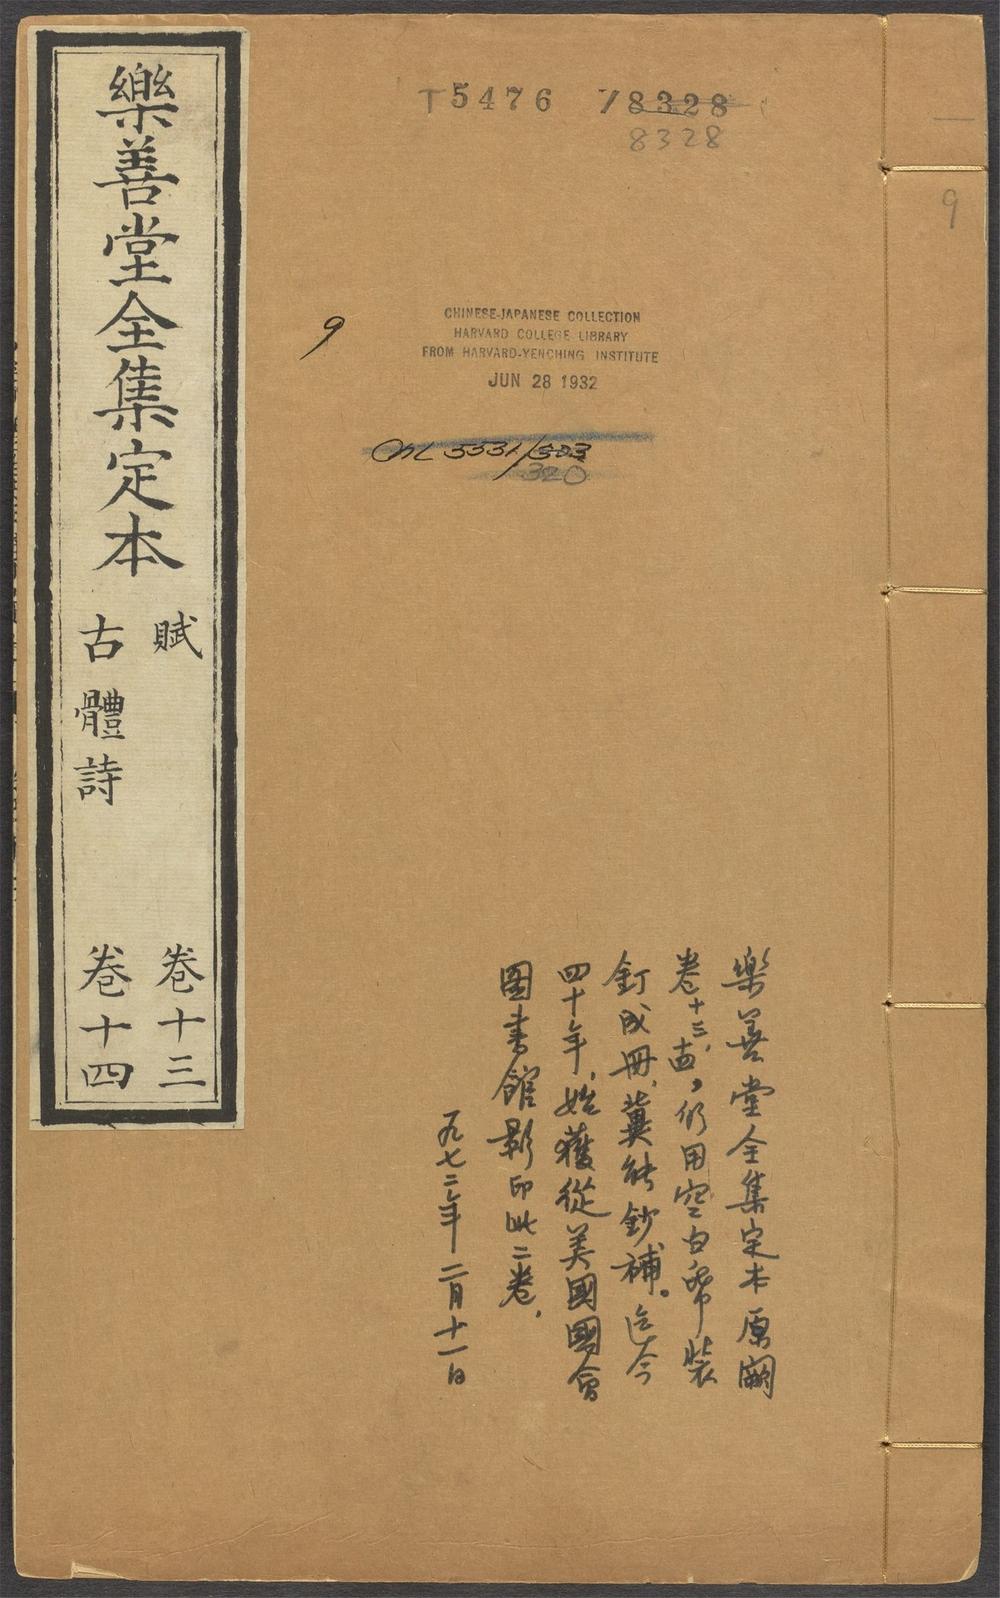 樂善堂全集定本
賦 卷十三
古體詩 卷十四
T5476 /8328
8328
9
9
CHINESE-JAPANESE COLLECTION
HARVARD COLLEGE LIBRARY
FROM HARVARD-YENCHING INSTITUTE
JUN 28 1932
320
樂善堂全集定本原闕
卷十三、四,仍用空白帋裝
釘成冊、冀能鈔補。迄今
四十年,始獲從美國國會
圖書館影印此二卷,
一九七二年二月十一日